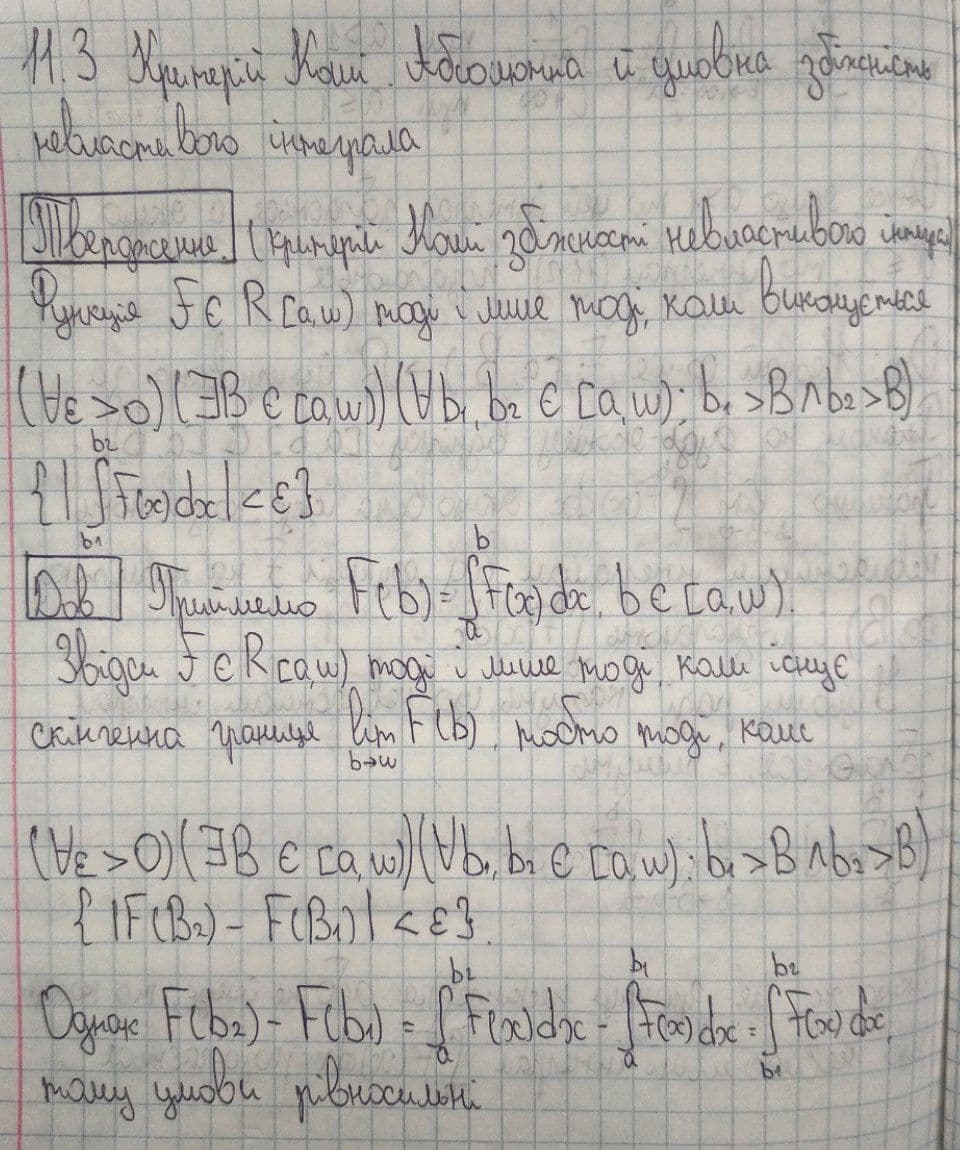 11.3 Критерій Коші. Абсолютна й умовна збіжність
невластивого інтеграла
Твердження. (критерій Коші збіжності невластивого інтеграла)
Функція f ∈ R[a,w) тоді і лише тоді, коли виконується
(∀ε>0)(∃B ∈ [a,w))(∀b₁,b₂ ∈ [a,w): b₁>B ∧ b₂>B)
{|∫_{b₁}^{b₂} f(x)dx| < ε}
Дов Приймемо F(b) = ∫_{a}^{b} f(x) dx, b ∈ [a,w).
Звідси f ∈ R[a,w) тоді і лише тоді, коли існує
скінченна границя lim_{b→w} F(b), тобто тоді, коли
(∀ε>0)(∃B ∈ [a,w))(∀b₁,b₂ ∈ [a,w): b₁>B ∧ b₂>B)
{|F(B₂) - F(B₁)| < ε}.
Однак F(b₂) - F(b₁) = ∫_{a}^{b₂} f(x)dx - ∫_{a}^{b₁} f(x)dx = ∫_{b₁}^{b₂} f(x) dx,
тому умови рівносильні